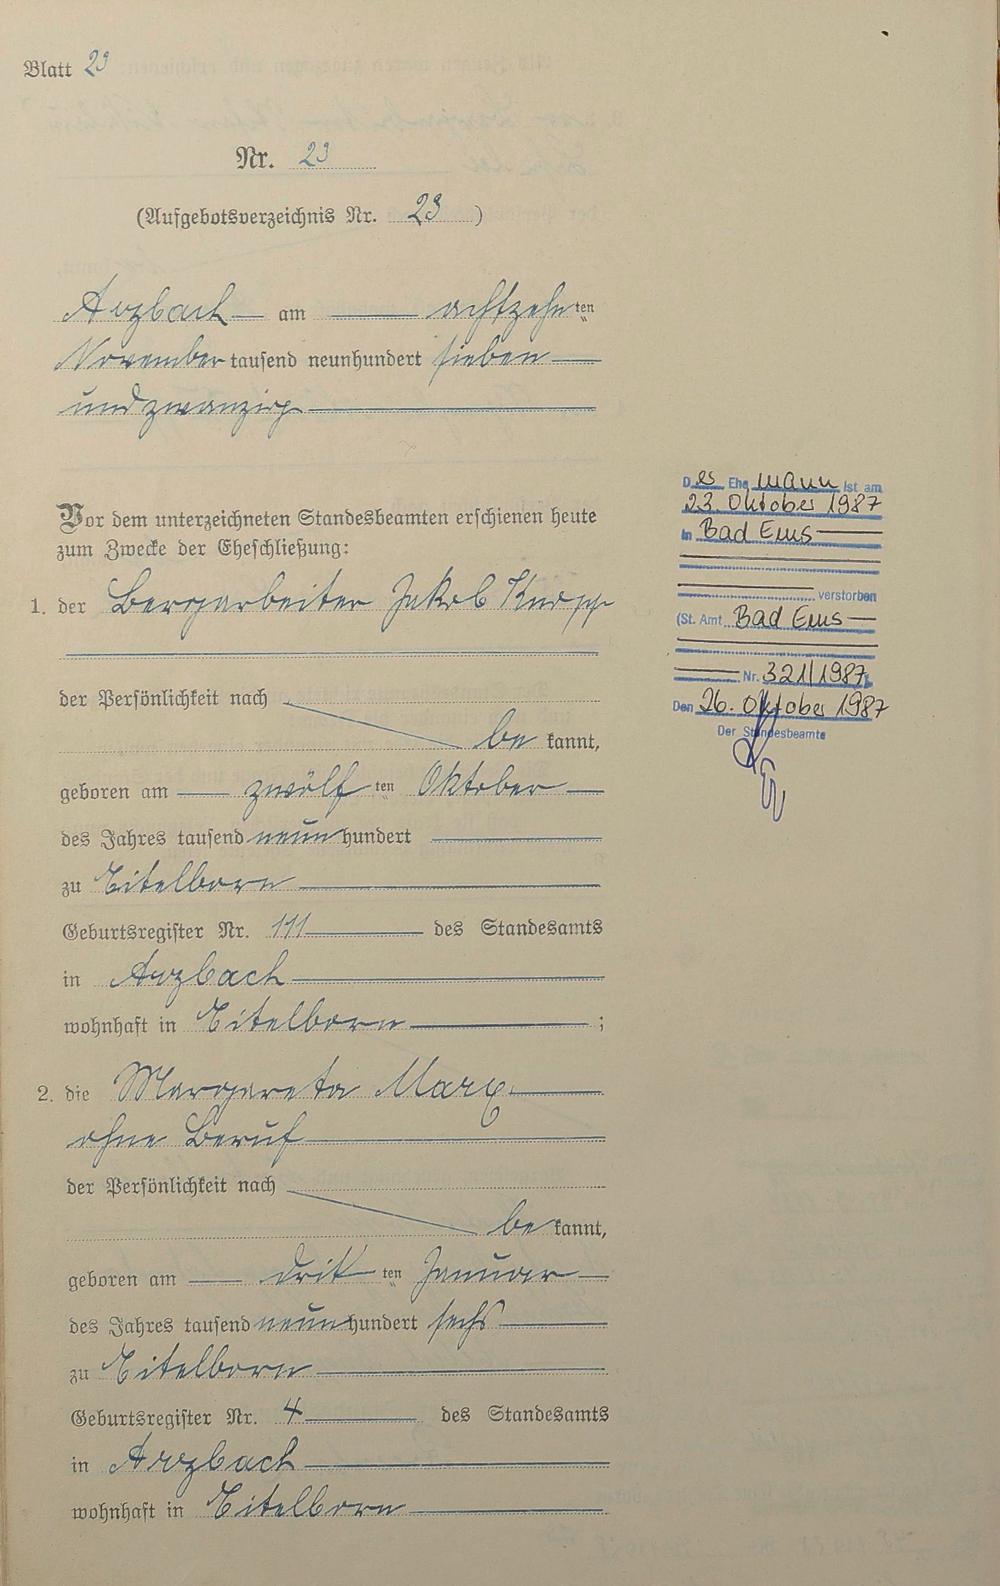 Blatt 23
Nr. 23
(Aufgebotsverzeichnis Nr. 23)
Arzbach am achtzehnten
November tausend neunhundert sieben
und zwanzig
Vor dem unterzeichneten Standesbeamten erschienen heute
zum Zwecke der Eheschließung:
1. der Bergarbeiter Jakob Knopp
der Persönlichkeit nach
be kannt,
geboren am zwölf ten Oktober
des Jahres tausend neun hundert
zu Eitelborn
Geburtsregister Nr. 111 des Standesamts
in Arzbach
wohnhaft in Eitelborn ;
2. die Margareta Marx
ohne Beruf
der Persönlichkeit nach
be kannt,
geboren am drit ten Januar
des Jahres tausend neun hundert sechs
zu Eitelborn
Geburtsregister Nr. 4 des Standesamts
in Arzbach
wohnhaft in Eitelborn
Der Ehemann ist am
23. Oktober 1987
in Bad Ems
verstorben
(St. Amt Bad Ems
Nr. 321/1987)
Den 26. Oktober 1987
Der Standesbeamte